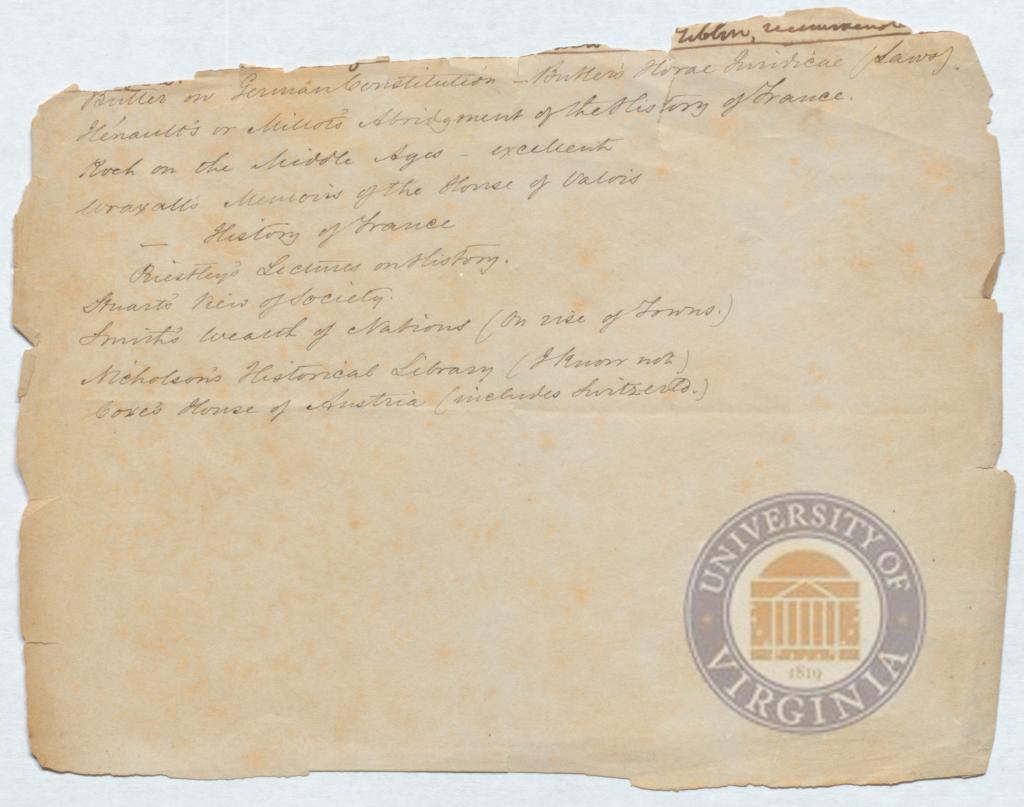 Butler on German Constitution – Butler's Horae Juridicae (Laws).
Henault's or Millot's Abridgment of the History of France.
Koch on the Middle Ages – excellent
Wraxall's Memoirs of the House of Valois
— History of France
Priestley's Lectures on History.
Stuart's View of Society.
Smith's Wealth of Nations (On rise of Towns.)
Nicholson's Historical Library (I know not)
Coxe's House of Austria (includes Switzerld.)
UNIVERSITY OF VIRGINIA
1819